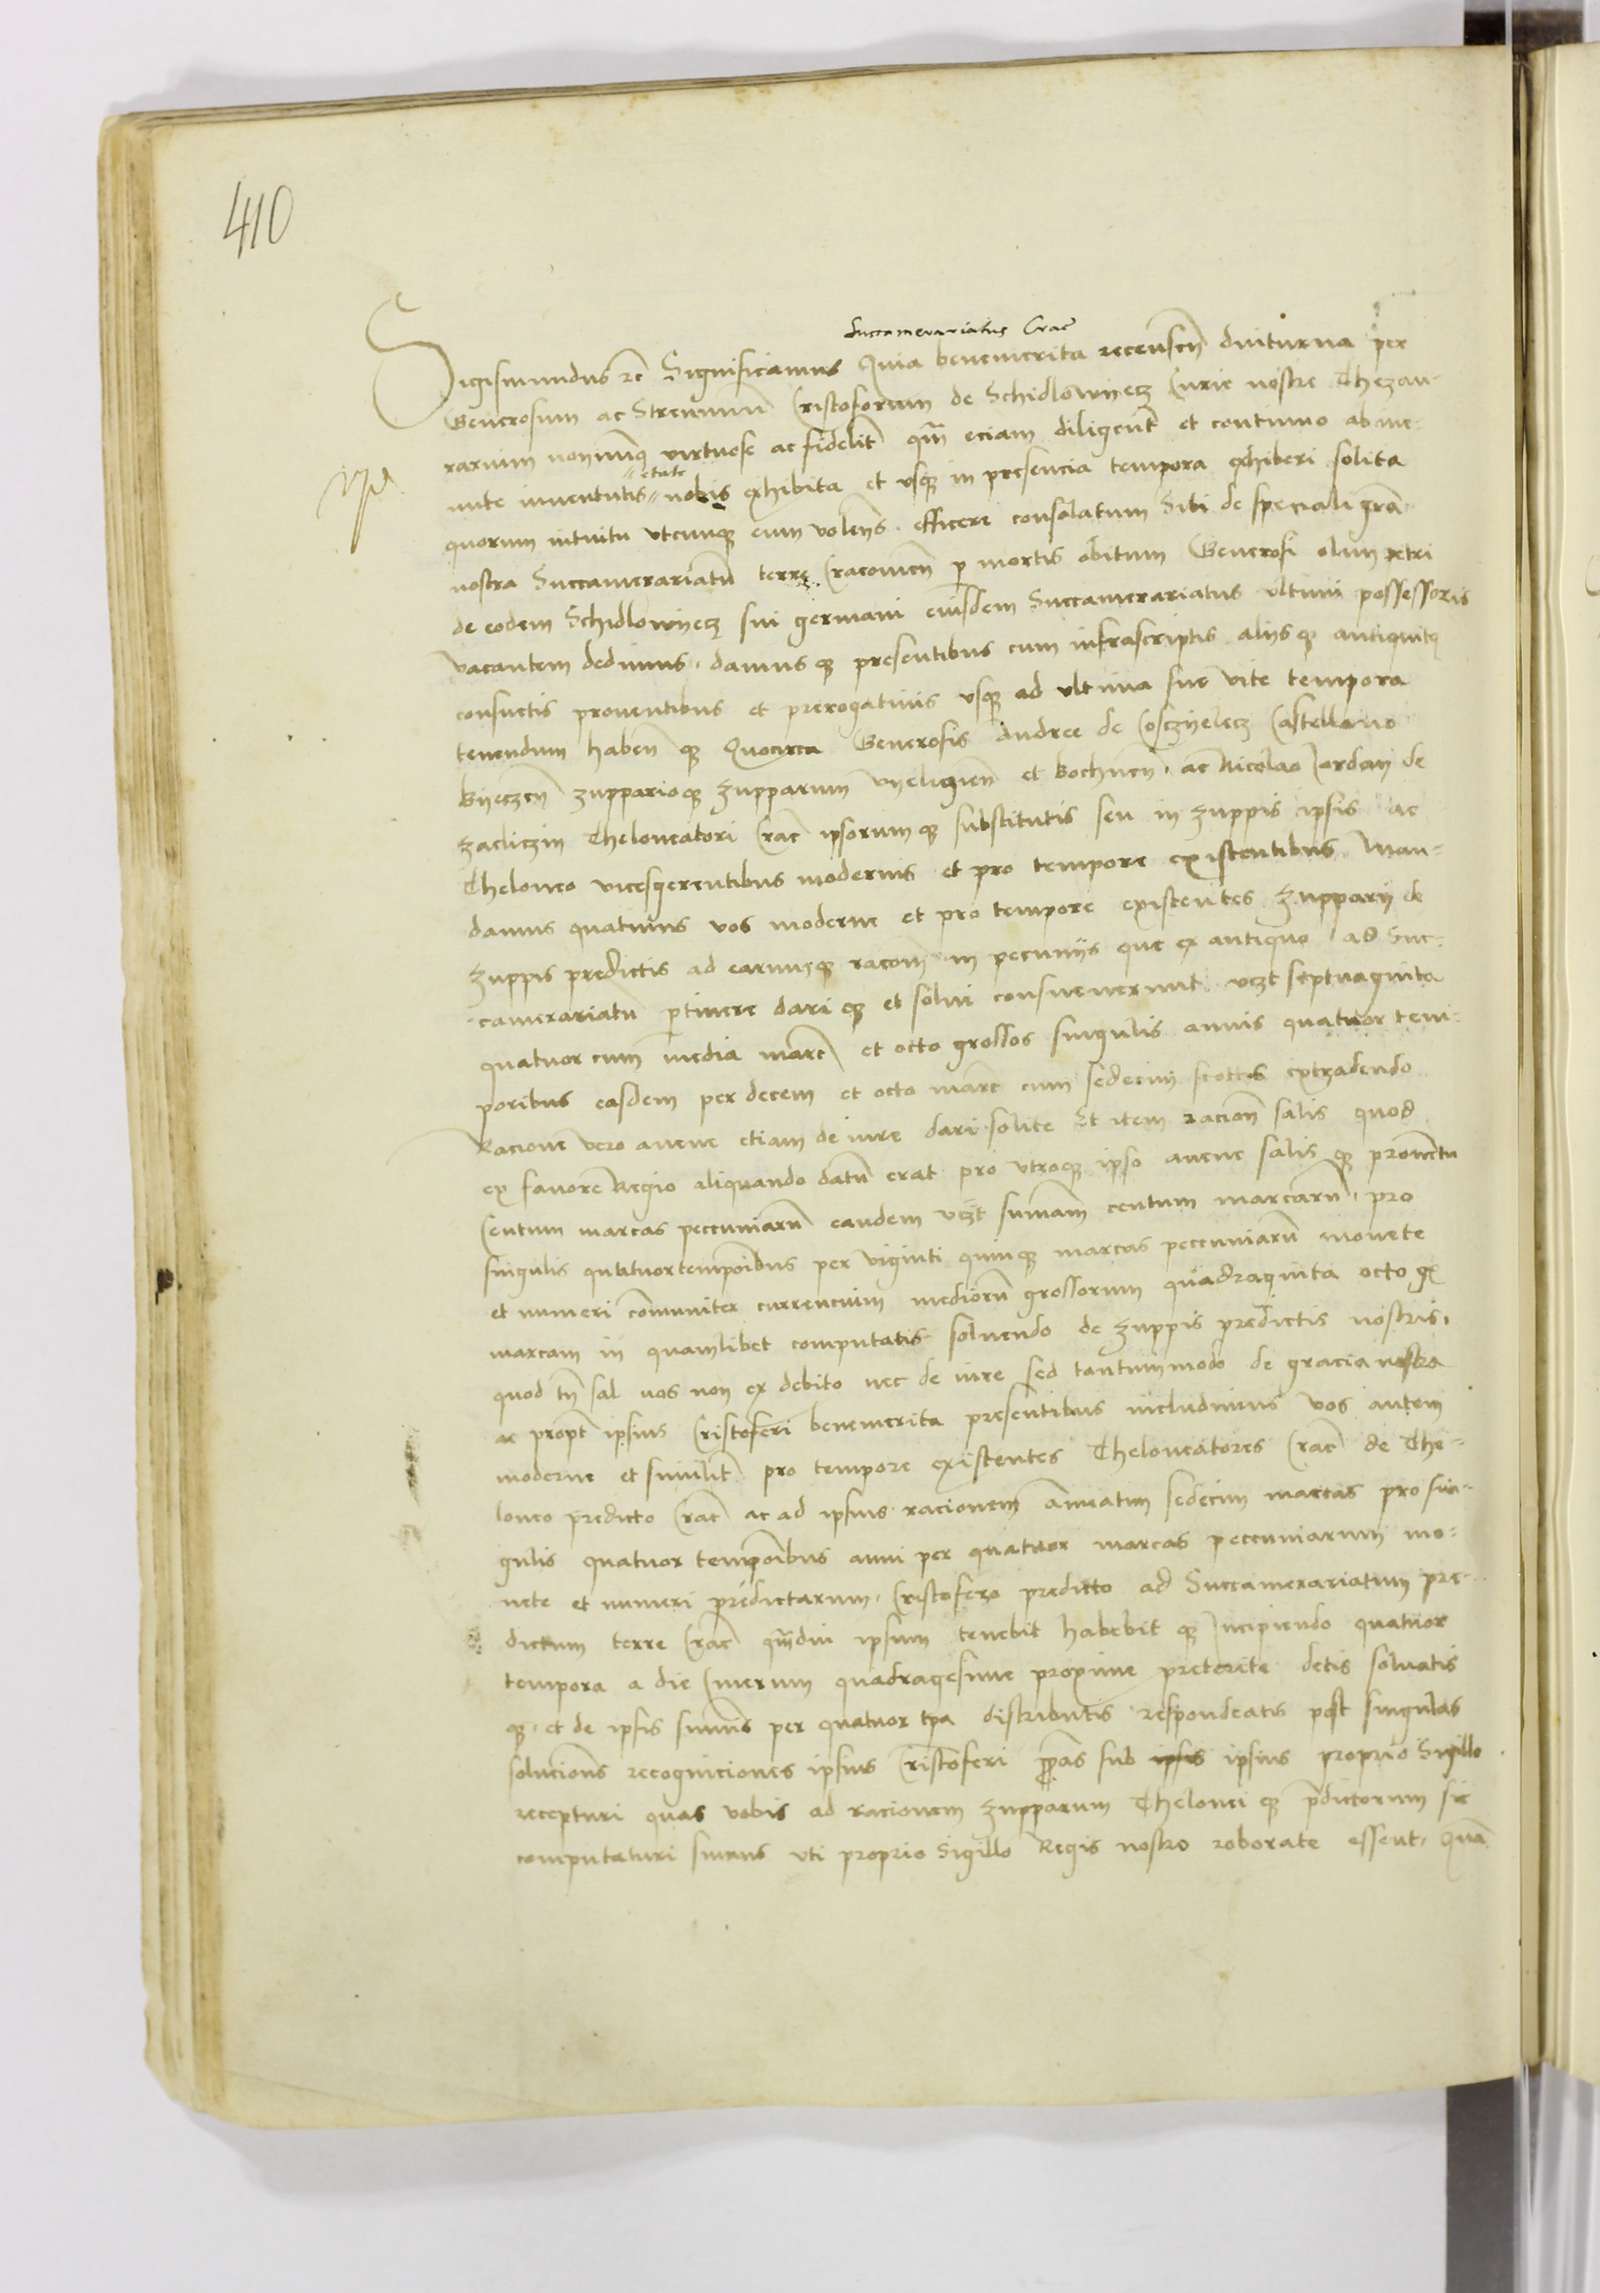 410
Succamerariatus Crac
Sigismundus rc Significamus Quia benemerita recensen diuturna per
Generosum ac Strenuum Cristoforum de Schidlowyecz Curie nostre Thezau-
rarium nonnunq virtuose ac fidelit qm eciam diligent et continuo ab ine-
unte iuventutis etate nobis exhibita et usq in presencia tempora exhiberi solita
quorum intuitu utcunq eum volens efficere consolatum Sibi de speciali gra
nostra Succamerariatu terre Cracovien p mortis obitum Generosi olim petri
de eodem Schidlowyecz sui germani eiusdem Succamerariatus ultimi possessoris
vacantem dedimus damus q presentibus cum infrascriptis aliis q antiquitq
consuetis proventibus et prerogativis usq ad ultima sue vite tempora
tenendum haben q Quocirca Generosis Andree de Cosczyelecz Castellano
Byeczen zuppario q zupparum Vyeliczien et Bochnen ac Nicolao Jordan de
Zacliczin Theloneatori Crac ipsorum q substitutis seu in zuppis ipsis ac
Theloneo vicesgerentibus modernis et pro tempore existentibus Man-
damus quatinus vos moderne et pro tempore existentes Zupparii de
Zuppis predictis ad earumq racom in pecuniis que ex antiquo ad Suc-
camerariatu ptinere dari q et solvi consueverunt vczt septuaginta
quatuor cum media marc et octo grossos singulis annis quatuor tem-
poribus easdem per decem et octo marc cum sedecim scottis extradendo
Racione vero avene etiam de iure dari solite Et item racion salis quod
ex favore Regio aliquando datu erat pro utroq ipso avene salis q proventu
Centum marcas peccuniaru eandem vczt sumam centum marcaru pro
singulis quatuortemporibus per viginti quinq marcas peccuniaru monete
et numeri comuniter currencium medioru grossorum quadraginta octo gr
marcam in quamlibet computatis solvendo de zuppis predictis nostris
quod tn sal vos non ex debito nec de iure sed tantummodo de gracia nostra
ac propt ipsius Cristoferi benemerita presentibus includimus vos autem
moderne et similit pro tempore existentes Theloneatores Crac de The-
loneo predicto Crac ac ad ipsius racionem annuatim sedecim marcas pro sin-
gulis quatuor temporibus anni per quatuor marcas peccuniarum mo-
nete et numeri predictarum Cristofero predicto ad Succamerariatum pre-
dictum terre Crac qmdiu ipsum tenebit habebit q Incipiendo quatuor
tempora a die Cinerum quadragesime proxime preterite detis solvatis
q et de ipsis sumis per quatuor tpa distributis respondeatis post singulas
solucions recogniciones ipsius Cristoferi ppas sub ipsis ipsius proprio Sigillo
recepturi quas vobis ad racionem zupparum Thelonei q pdictorum sic
computaturi sumus uti proprio Sigillo Regis nostro roborate essent Qua